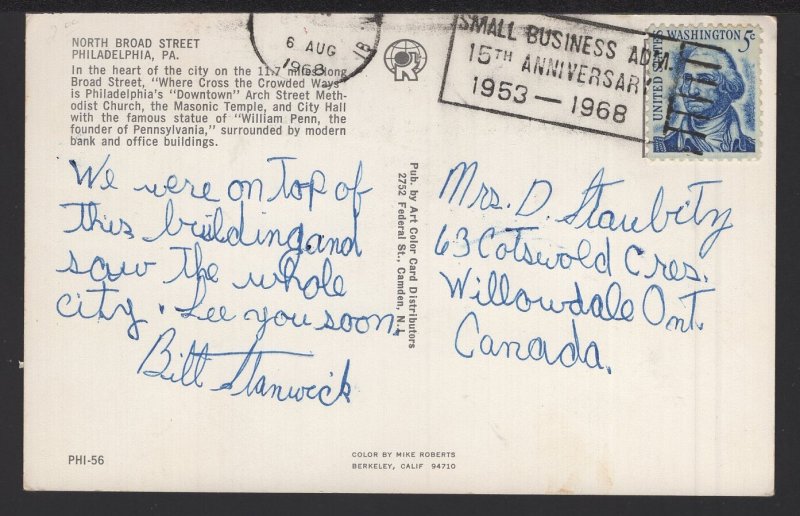 NORTH BROAD STREET
PHILADELPHIA, PA.
In the heart of the city on the 11.7 mile long
Broad Street, "Where Cross the Crowded Ways"
is Philadelphia's "Downtown" Arch Street Meth-
odist Church, the Masonic Temple, and City Hall
with the famous statue of "William Penn, the
founder of Pennsylvania," surrounded by modern
bank and office buildings.
6 AUG
1968
R
SMALL BUSINESS ADM.
15TH ANNIVERSARY
1953 — 1968
WASHINGTON 5c
UNITED STATES
We were on top of
this building, and
saw the whole
city. See you soon.
Bill Stanwick
Pub. by Art Color Card Distributors
2752 Federal St., Camden, N.J.
Mrs. D. Staubitz
63 Cotswold Cres.
Willowdale Ont.
Canada.
PHI-56
COLOR BY MIKE ROBERTS
BERKELEY, CALIF 94710